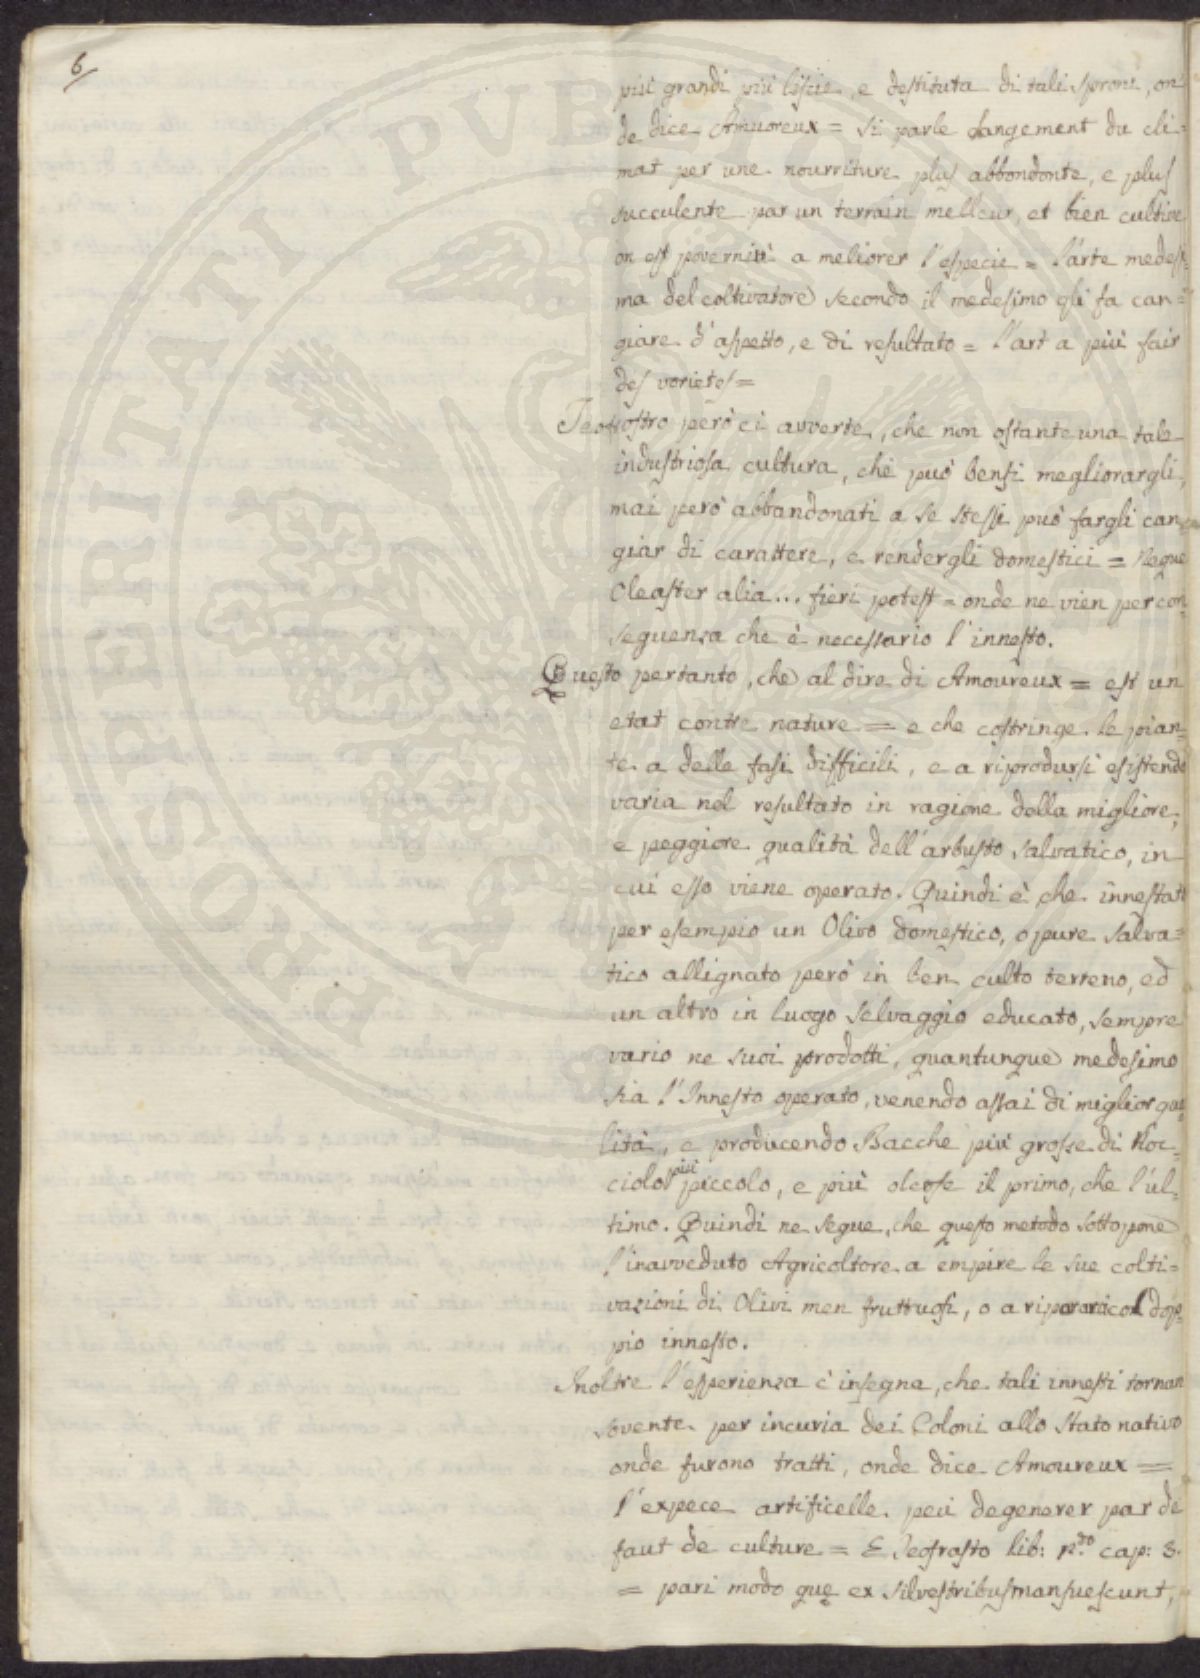 6/
più grandi più liscie, e destituta di tali sproni, on
de dice Amuoreux = si parle changement du cli=
mat per une nourriture plus abbondonte, e plus
succulente par un terrain melleur, et bien cultive
on est poverniù a meliorer l'especie = l'arte medesi=
ma del coltivatore secondo il medesimo gli fa can=
giare d'aspetto, e di resultato = l'art a più fair
des varietes =
Teofrostro però ci avverte, che non ostante una tale
industriosa cultura, che può bensi megliorargli,
mai però abbandonati a se stessi può fargli can
giar di carattere, e rendergli domestici = Neque
Oleaster alia... fieri potest = onde ne vien per con=
seguenza che è necessario l'innesto.
Questo pertanto, che al dire di Amoureux = est un
etat contre nature = e che costringe le pian=
te a delle fasi difficili, e a riprodursi esistendo
varia nel resultato in ragione della migliore,
e peggiore qualità dell'arbusto salvatico, in
cui esso viene operato. Quindi è che innestati
per esempio un Olivo domestico, o pure salva=
tico allignato però in ben culto terreno, ed
un altro in luogo selvaggio educato, sempre
vario ne suoi prodotti, quantunque medesimo
sia l'Innesto operato, venendo assai di miglior qua
lità, e producendo Bacche più grosse di Noc=
ciolo più piccolo, e più oleose il primo, che l'ul=
timo. Quindi ne segue, che questo metodo sottopone
l'inavveduto Agricoltore a empire le sue colti=
vazioni di Olivi men fruttuosi, o a ripararci col dop=
pio innesto.
Inoltre l'esperienza c'insegna, che tali innesti tornan
sovente per incuria dei Coloni allo stato nativo
onde furono tratti, onde dice Amoureux =
l'expece artificelle peu degenerer par de
faut de culture = E Teofrasto lib: p.do cap: 3.
= pari modo quę ex silvestribus mansuescunt,